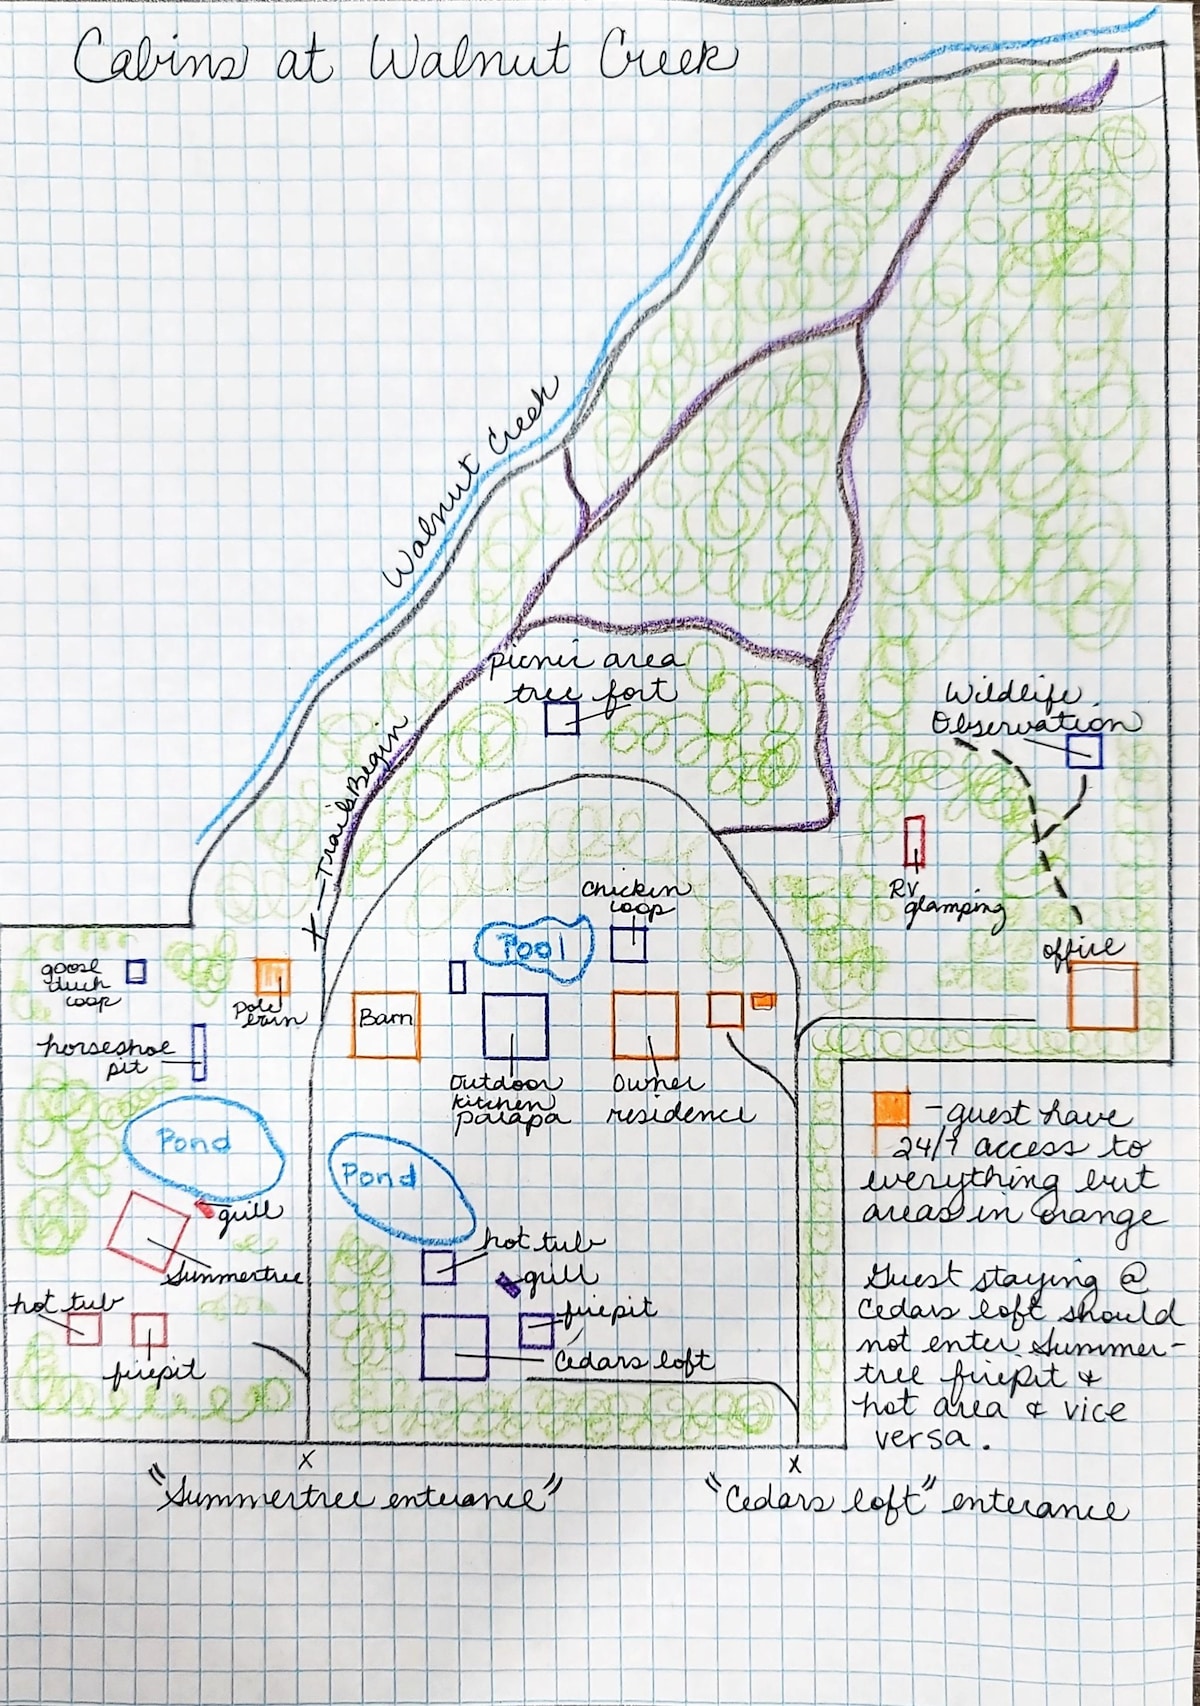 Cabins at Walnut Creek
Walnut Creek
picnic area
tree fort
Wildlife
Observation
X - Trails Begin
RV
glamping
Chicken
coop
Pool
office
goose
duck
coop
Pole
barn
Barn
horseshoe
pit
Outdoor
kitchen
palapa
Owner
residence
Pond
Pond
grill
Summertree
hot tub
firepit
hot tub
grill
firepit
Cedars loft
- guest have
24/7 access to
everything but
areas in orange
Guest staying @
Cedars loft should
not enter Summer-
tree firepit &
hot area & vice
versa.
X
"Summertree entrance"
X
"Cedars loft" entrance